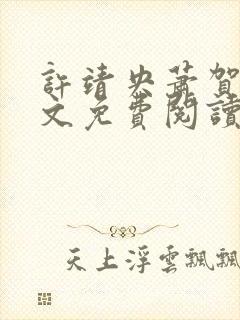 許靖央蕭賀
文免費閱讀
天上浮雲飄飄